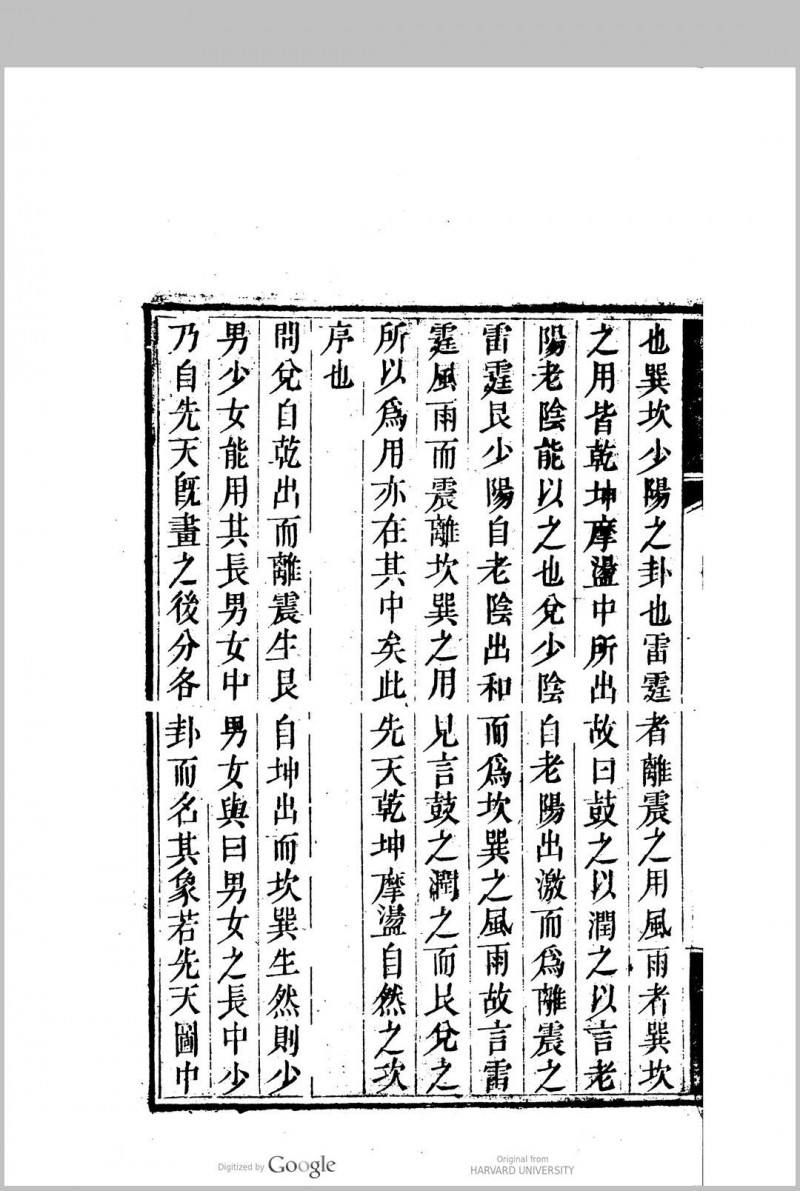 也巽坎少陽之卦也雷霆者離震之用風雨者巽坎
之用皆乾坤摩盪中所出故曰鼓之以潤之以言老
陽老陰能以之也兌少陰自老陽出激而爲離震之
雷霆艮少陽自老陰出和而爲坎巽之風雨故言雷
霆風雨而震離坎巽之用見言鼓之潤之而艮兌之
所以爲用亦在其中矣此先天乾坤摩盪自然之次
序也
問兌自乾出而離震生艮自坤出而坎巽生然則少
男少女能用其長男女中男女與曰男女之長中少
乃自先天旣畫之後分各卦而名其象若先天圖中
Digitized by Google
Original from
HARVARD UNIVERSITY